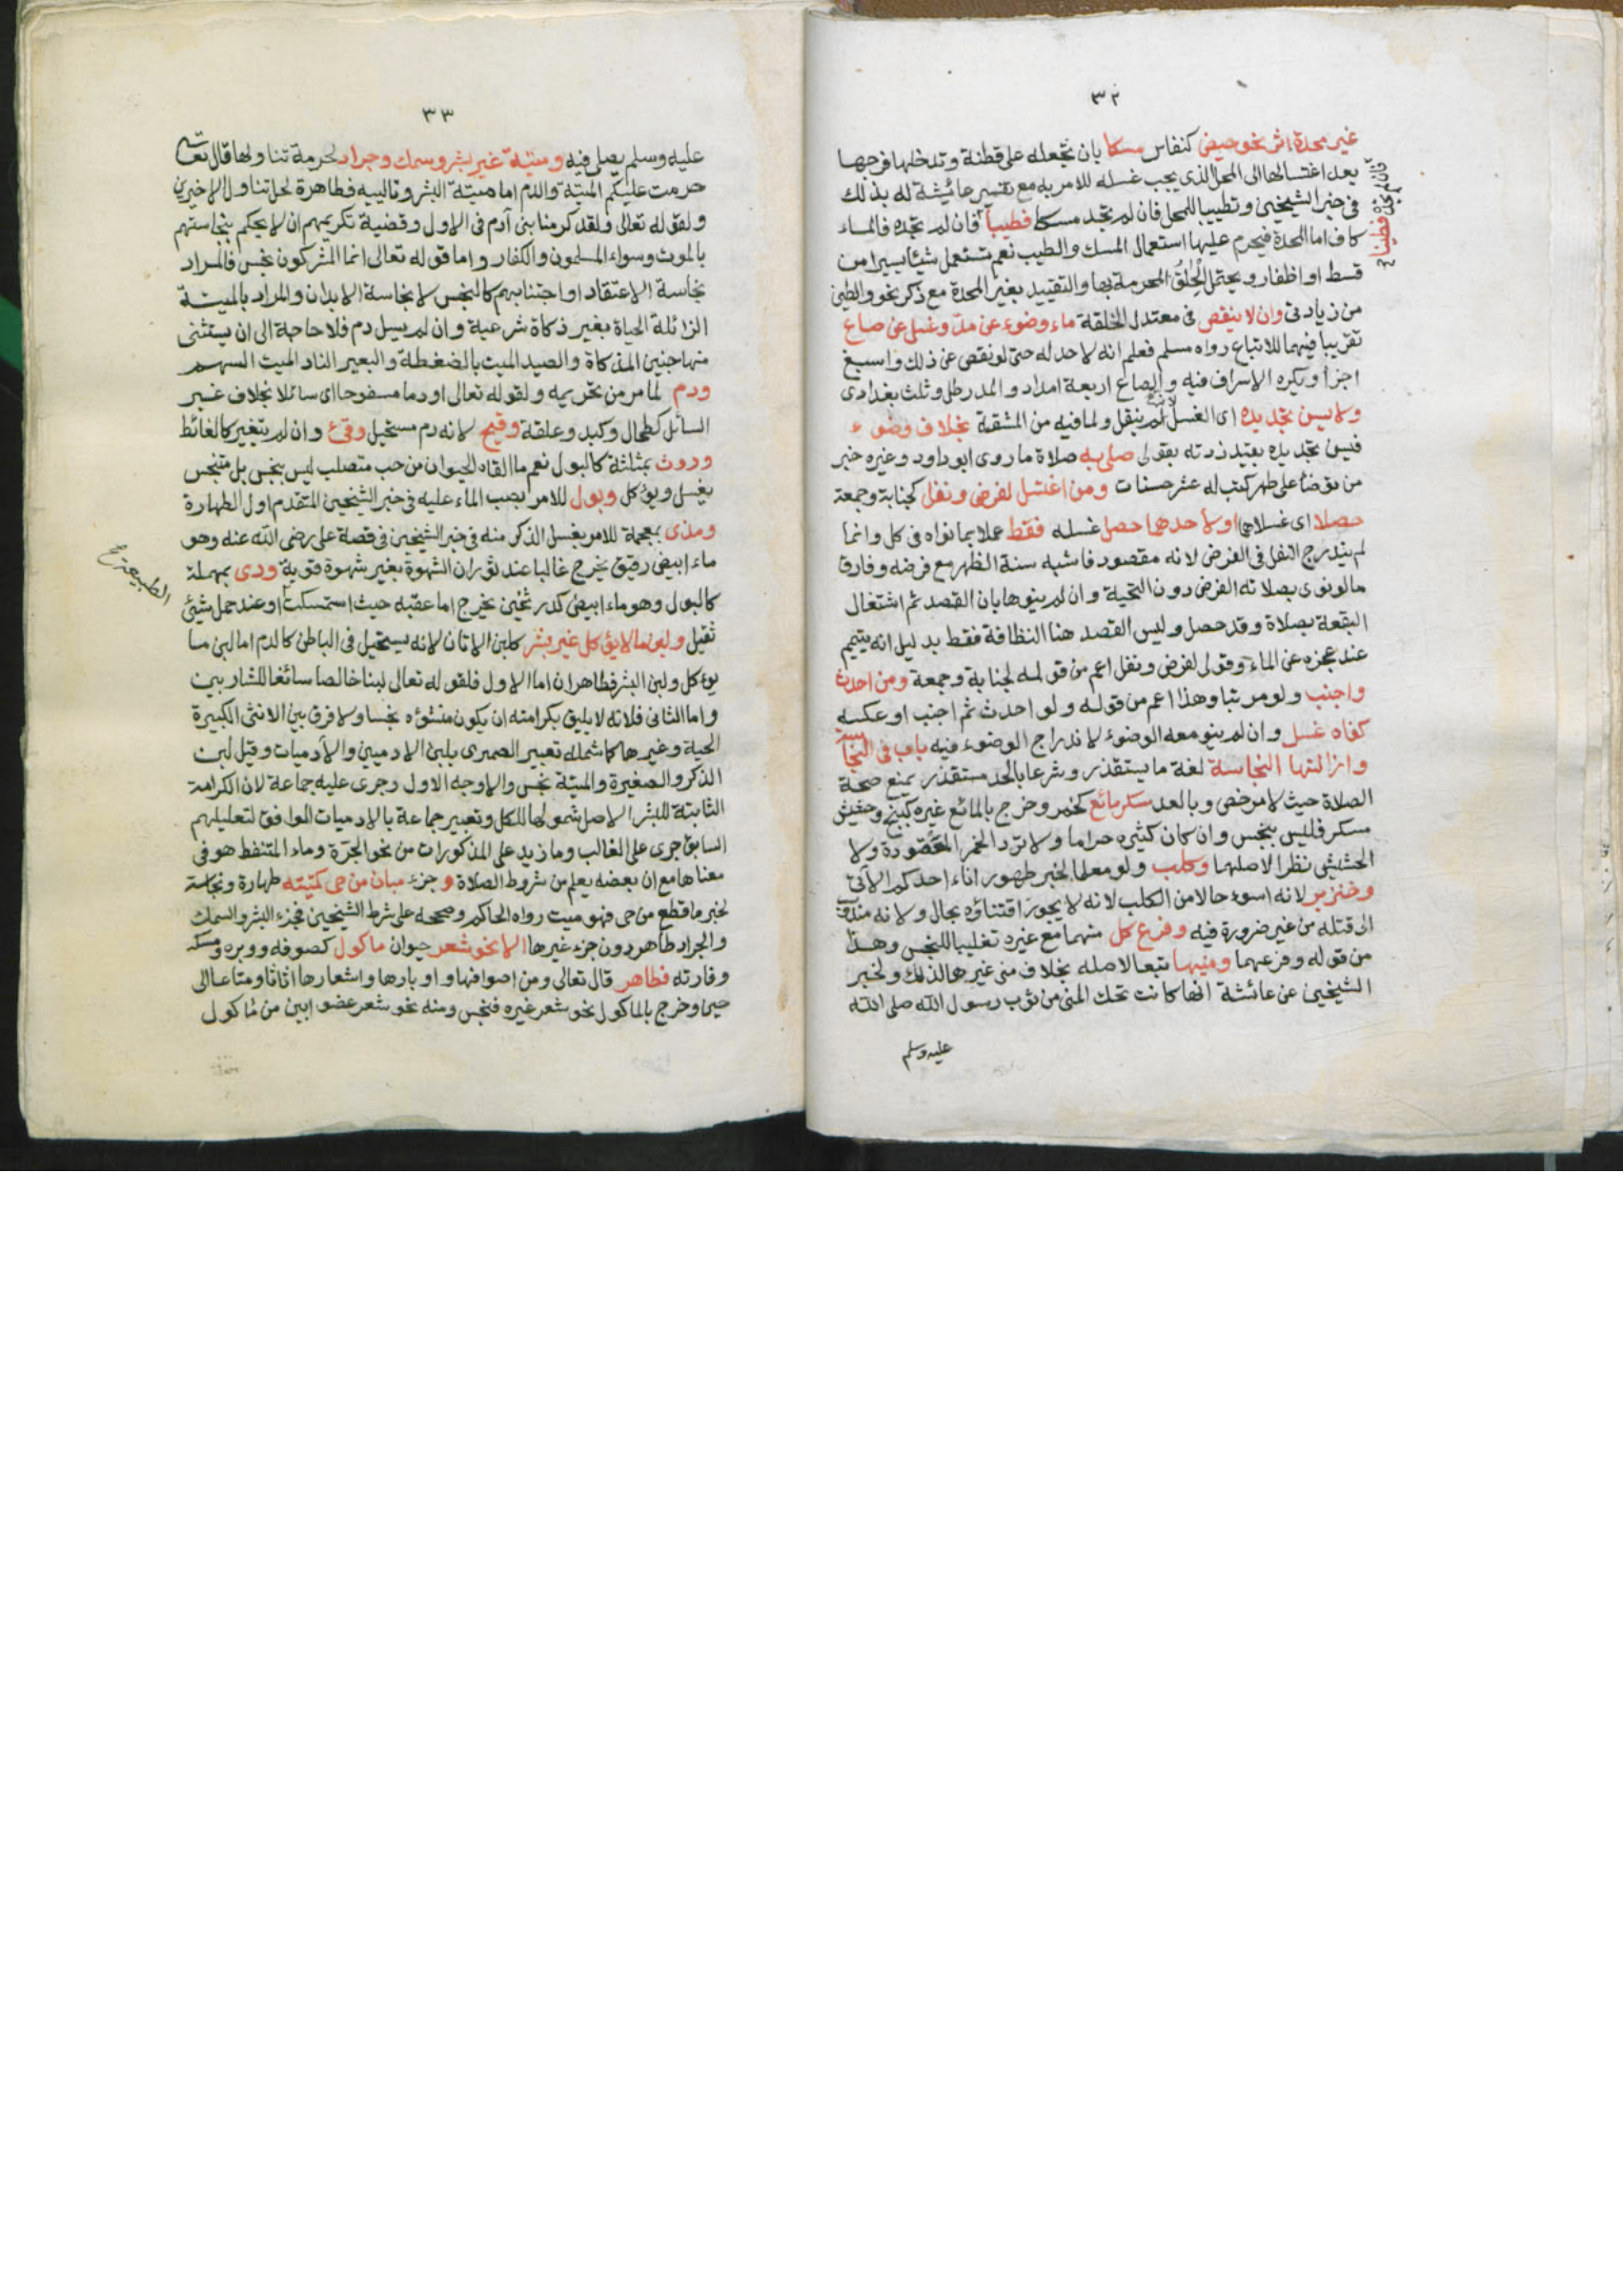 ٣٢
غير محدة اثر نحو حيض كنفاس مسكا بان تجعله على قطنة وتدخلها فرجها
بعد اغتسالها الى المحل الذى يجب غسله للامر به مع تفسير عائشة له بذلك
فى خبر الشيخين وتطييبا للمحل فان لم تجد مسكا فطيبا فان لم تجده فالماء
كاف اما المحدة فيحرم عليها استعمال المسك والطيب نعم تستعمل شيئا يسيرا من
قسط او اظفار ويحتمل الحاق المحرمة بها والتقييد بغير المحدة مع ذكر نحو والطين
من زيادتى وان لا ينقص فى معتدل الخلقة ماء وضوء عن مد وغسل عن صاع
تقريبا فيهما للاتباع رواه مسلم فعلم انه لا حد له حتى لو نقص عن ذلك واسبغ
اجزأ ويكره الاسراف فيه والصاع اربعة امداد والمد رطل وثلث بغدادى
ولا يسن تجديده اى الغسل لانه لم ينقل ولما فيه من المشقة بخلاف وضوء
فيسن تجديده بقيد زدته بقولى صلى به صلاة ما روى ابو داود وغيره خبر
من توضأ على طهر كتب له عشر حسنات ومن اغتسل لفرض ونفل كجنابة وجمعة
حصلا اى غسلاهما او لاحدهما حصل غسله فقط عملا بما نواه فى كل وانما
لم يندرج النفل فى الفرض لانه مقصود فاشبه سنة الظهر مع فرضه وفارق
ما لو نوى بصلاته الفرض دون التحية وان لم ينوها بان القصد ثم اشتغال
البقعة بصلاة وقد حصل وليس القصد هنا النظافة فقط بدليل انه يتيمم
عند عجزه عن الماء وقولى لفرض ونفل اعم من قوله لجنابة وجمعة ومن احدث
واجنب ولو مرتبا وهذا اعم من قوله ولو احدث ثم اجنب او عكسه
كفاه غسل وان لم ينو معه الوضوء لاندراج الوضوء فيه باب فى النجاسة
وازالتها النجاسة لغة ما يستقذر وشرعا بالحد مستقذر يمنع صحة
الصلاة حيث لا مرخص وبالعد مسكر مائع كخمر وخرج بالمائع غيره كبنج وحشيش
مسكر فليس بنجس وان كان كثيره حراما ولا ترد الخمر المعقودة ولا
الحشيش نظرا لاصلهما وكلب ولو معلما لخبر طهور اناء احدكم الآتى
وخنزير لانه اسوء حالا من الكلب لانه لا يجوز اقتناؤه بحال ولانه مندوب
الى قتله من غير ضرورة فيه وفرع كل منهما مع غيره تغليبا للنجس وهذا
من قوله وفرعهما ومنيها تبعا لاصله بخلاف منى غيرها لذلك ولخبر
الشيخين عن عائشة انها كانت تحك المنى من ثوب رسول الله صلى الله
عليه وسلم
٣٣
عليه وسلم يصلى فيه وميتة غير بشر وسمك وجراد لحرمة تناولها قال تعالى
حرمت عليكم الميتة والدم اما ميتة البشر وتالييه فطاهرة لحل تناول الاخيرين
ولقوله تعالى ولقد كرمنا بنى آدم فى الاول وقضية تكريمهم ان لا يحكم بنجاستهم
بالموت وسواء المسلمون والكفار واما قوله تعالى انما المشركون نجس فالمراد
نجاسة الاعتقاد او اجتنابهم كالنجس لا نجاسة الابدان والمراد بالميتة
الزائلة الحياة بغير ذكاة شرعية وان لم يسل دم فلا حاجة الى ان يستثنى
منها جنين المذكاة والصيد الميت بالضغطة والبعير الناد الميت السهم
ودم لما مر من تحريمه ولقوله تعالى او دما مسفوحا اى سائلا بخلاف غير
السائل كطحال وكبد وعلقة وقيح لانه دم مستحيل وقئ وان لم يتغير كالغائط
وروث بمثلثة كالبول نعم ما القاه الحيوان من حب متصلب ليس بنجس بل متنجس
يغسل ويؤكل وبول للامر بصب الماء عليه فى خبر الشيخين المتقدم اول الطهارة
ومذى بمعجمة للامر بغسل الذكر منه فى خبر الشيخين فى قصة على رضى الله عنه وهو
ماء ابيض رقيق يخرج غالبا عند ثوران الشهوة بغير شهوة قوية وودى بمهملة
كالبول وهو ماء ابيض كدر ثخين يخرج اما عقبه حيث استمسكت او عند حمل شيئ
الطبيعة صح
ثقيل ولبن ما لا يؤكل غير بشر كلبن الاتان لانه يستحيل فى الباطن كالدم اما لبن ما
يؤكل ولبن البشر فطاهران اما الاول فلقوله تعالى لبنا خالصا سائغا للشاربين
واما الثانى فلانه لا يليق بكرامته ان يكون منشؤه نجسا ولا فرق بين الانثى الكبيرة
الحية وغيرها كما شمله تعبير الصمرى بلبن الادميين والآدميات وقيل لبن
الذكر والصغيرة والميتة نجس والاوجه الاول وجرى عليه جماعة لان الكرامة
الثابتة للبشر الاصل شمولها للكل وتعبير جماعة بالادميات الموافق لتعليلهم
السابق جرى على الغالب وما زيد على المذكورات من نحو الجرة وماء المتنفط هو فى
معناها مع ان بعضه يعلم من شروط الصلاة وجزء مبان من حى كميتته طهارة ونجاسة
لخبر ما قطع من حى فهو ميت رواه الحاكم وصححه على شرط الشيخين فجزء البشر والسمك
والجراد طاهر دون جزء غيرها الا نحو شعر حيوان ماكول كصوفه ووبره ومسكه
وفارته فطاهر قال تعالى ومن اصوافها واوبارها واشعارها اثاثا ومتاعا الى
حين وخرج بالماكول نحو شعر غيره فنجس ومنه نحو شعر عضو ابين من ماكول